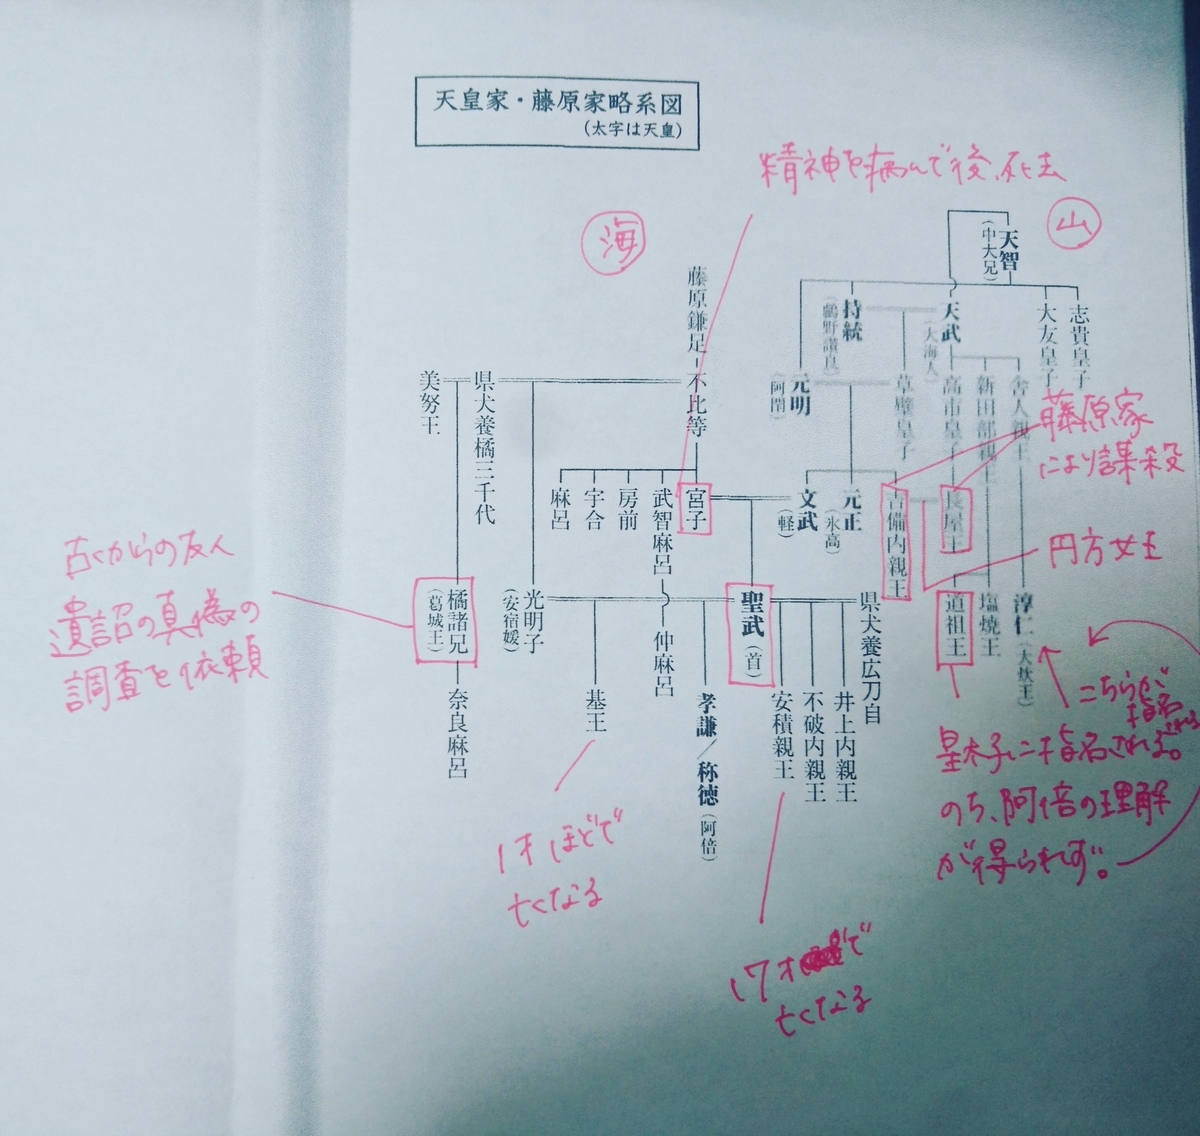 天皇家・藤原家略系図
(太字は天皇)
精神を病んで後、死去
山
海
天智
(中大兄)
志貴皇子
大友皇子
天武
(大海人)
持統
(鸕野讃良)
元明
(阿閇)
草壁皇子
高市皇子
新田部親王
舎人親王
藤原鎌足
不比等
県犬養橘三千代
美努王
藤原家
により謀殺
長屋王
吉備内親王
元正
(氷高)
文武
(軽)
宮子
武智麻呂
房前
宇合
麻呂
円方女王
淳仁(大炊王)
塩焼王
道祖王
県犬養広刀自
聖武(首)
仲麻呂
光明子
(安宿媛)
橘諸兄
(葛城王)
古くからの友人
遺詔の真偽の
調査を依頼
こちらが
指名
される
皇太子に指名されれば。
のち、阿倍の理解
が得られず。
井上内親王
不破内親王
安積親王
孝謙／称徳(阿倍)
基王
奈良麻呂
1才ほどで
亡くなる
17才で
亡くなる